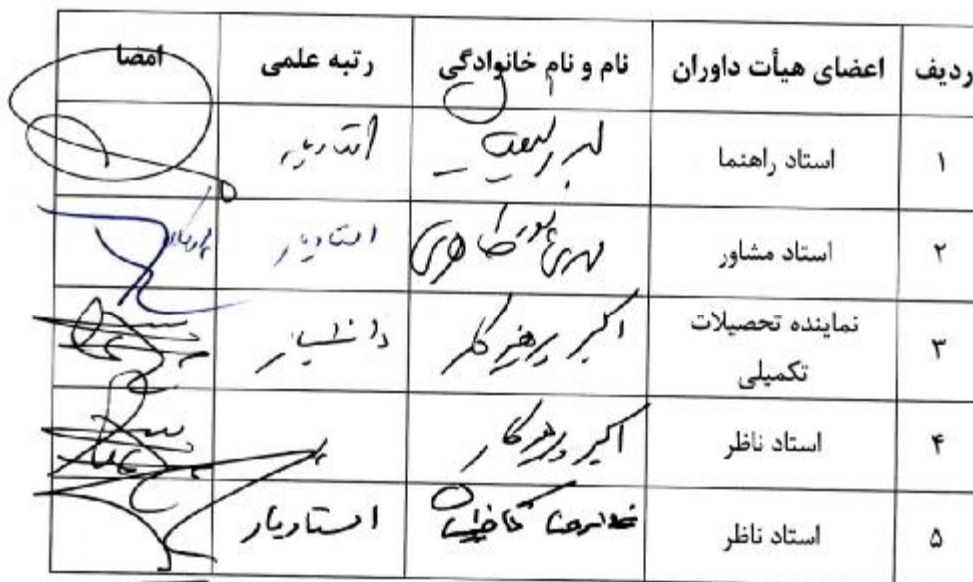 ردیف اعضای هیأت داوران نام و نام خانوادگی رتبه علمی امضا
۱ استاد راهنما استادیار
۲ استاد مشاور مهدی پورطاهری استادیار
۳ نماینده تحصیلات تکمیلی اکبر پرهیزکار دانشیار
۴ استاد ناظر اکبر پرهیزکار
۵ استاد ناظر استادیار